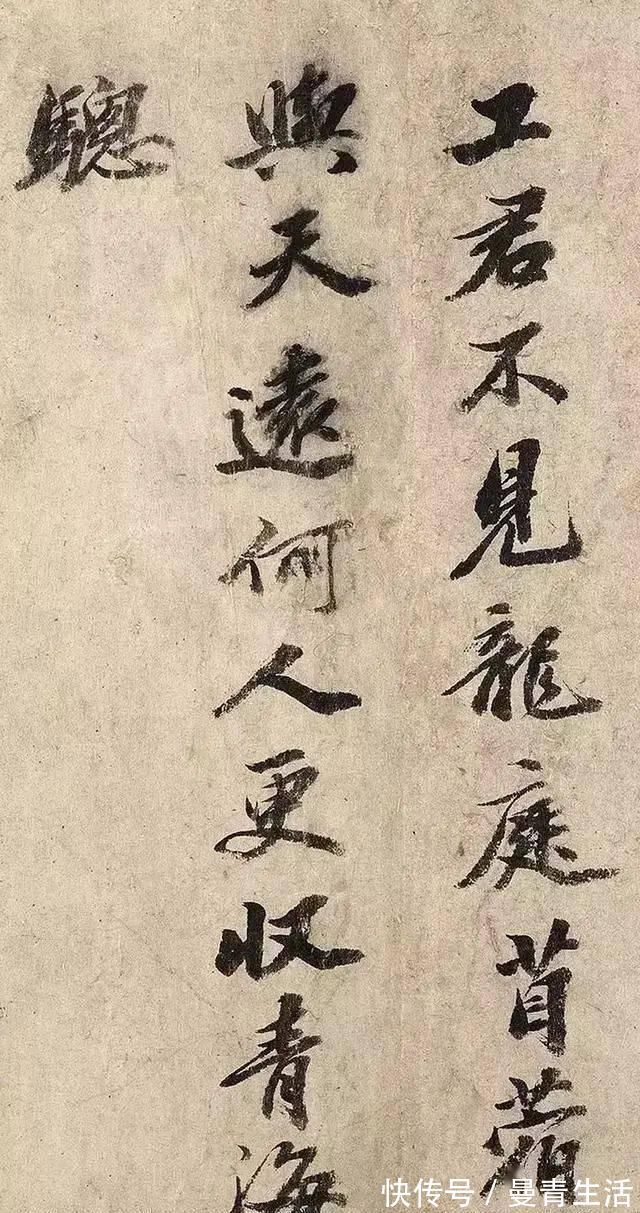 工君不見龍庭苜蓿
與天遠何人更收青海
驄
快传号/曼青生活